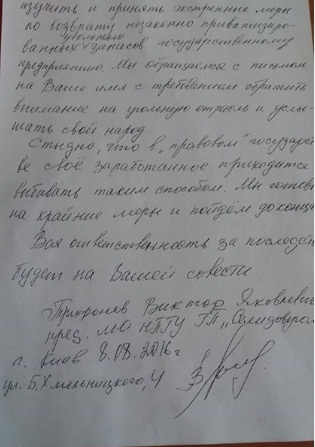 изучить и принять экстренные меры
по возврату незаконно приватизиро-
угольных
ванных запасов государственному
предприятию. Мы обращаемся с письмом
на Ваше имя с требованием обратить
внимание на угольную отрасль и услы-
шать свой народ
Стыдно, что в "правовом" государст
ве своё заработанное приходится
выбивать таким способом. Мы готовы
на крайние меры и пойдём до конца
Вся ответственность за последст
будет на Вашей совести
Виктор Яковлевич
пред. МО НПГУ ГП
г. Киев 8.08.2016 г
ул. Б. Хмельницкого, 4